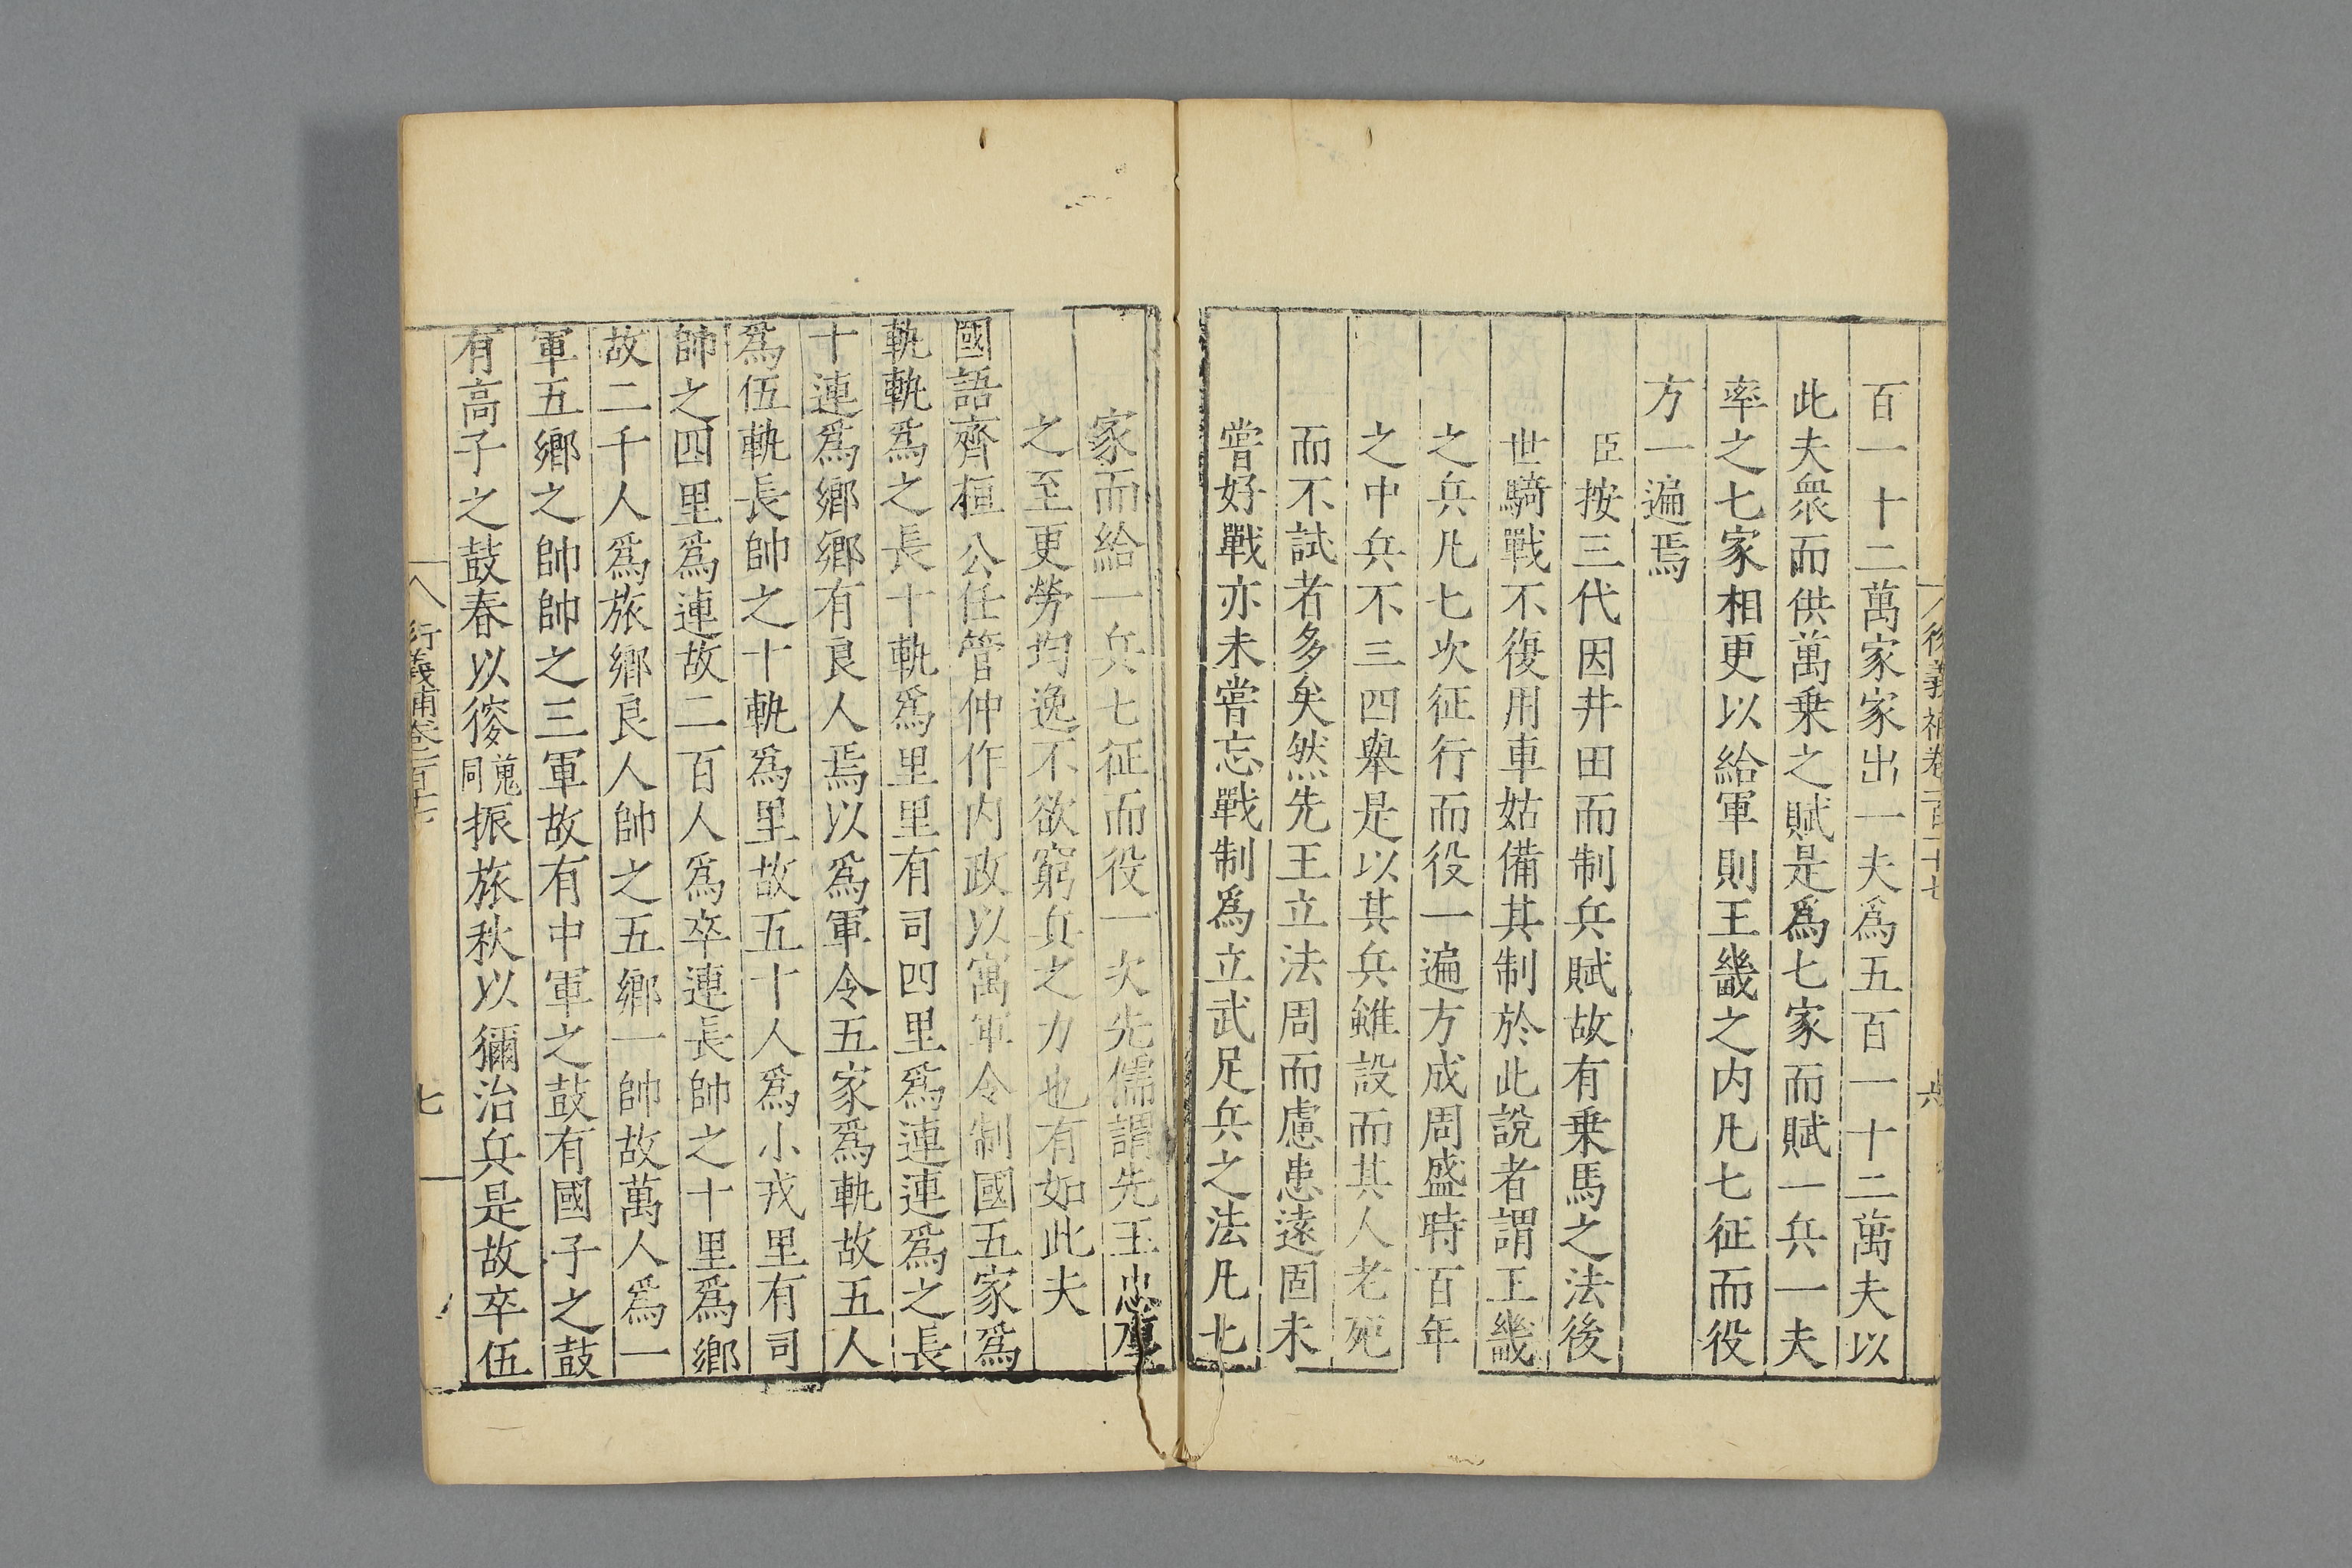 百一十二萬家家出一夫爲五百一十二萬夫以
此夫衆而供萬乗之賦是爲七家而賦一兵一夫
率之七家相更以給軍則王畿之内凡七征而役
方一遍焉
臣按三代因井田而制兵賦故有乗馬之法後
世騎戰不復用車姑備其制於此說者謂王畿
之兵凡七次征行而役一遍方成周盛時百年
之中兵不三四舉是以其兵雖設而其人老死
而不試者多矣然先王立法周而慮患遠固未
嘗好戰亦未嘗忘戰制爲立武足兵之法凡七
家而給一兵七征而役一次先儒謂先王忠厚
之至更勞均逸不欲窮兵之力也有如此夫
國語齊桓公任管仲作内政以寓軍令制國五家爲
軌軌爲之長十軌爲里里有司四里爲連連爲之長
十連爲鄉鄉有良人焉以爲軍令五家爲軌故五人
爲伍軌長帥之十軌爲里故五十人爲小戎里有司
帥之四里爲連故二百人爲卒連長帥之十里爲鄉
故二千人爲旅鄉良人帥之五鄉一帥故萬人爲一
軍五鄉之帥帥之三軍故有中軍之鼓有國子之鼓
有高子之鼓春以獀蒐同振旅秋以獮治兵是故卒伍
衍義補卷一百十七
七